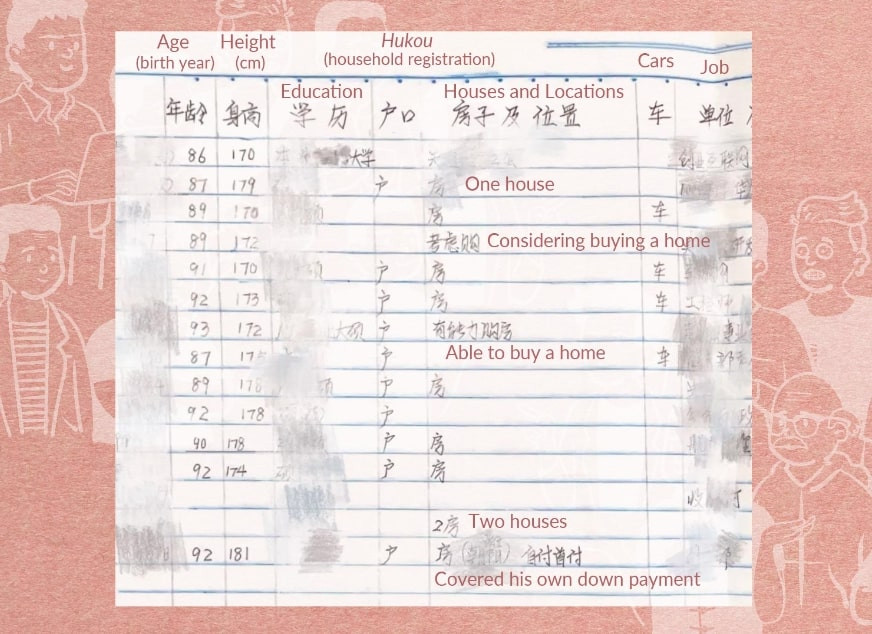 Age Height Hukou Cars Job
(birth year) (cm) (household registration)
Education Houses and Locations
年龄 身高 学历 户口 房子及位置 车 单位
86 170 大学
87 179 户 房 One house
89 170 房 车
89 172 考虑购 Considering buying a home
91 170 户 房 车
92 173 户 房 车
93 172 户 有能力购房
87 175 户 Able to buy a home 车
89 178 户 房
92 178 户
90 178 户 房
92 174 户 房
2房 Two houses
92 181 户 房 自付首付
Covered his own down payment